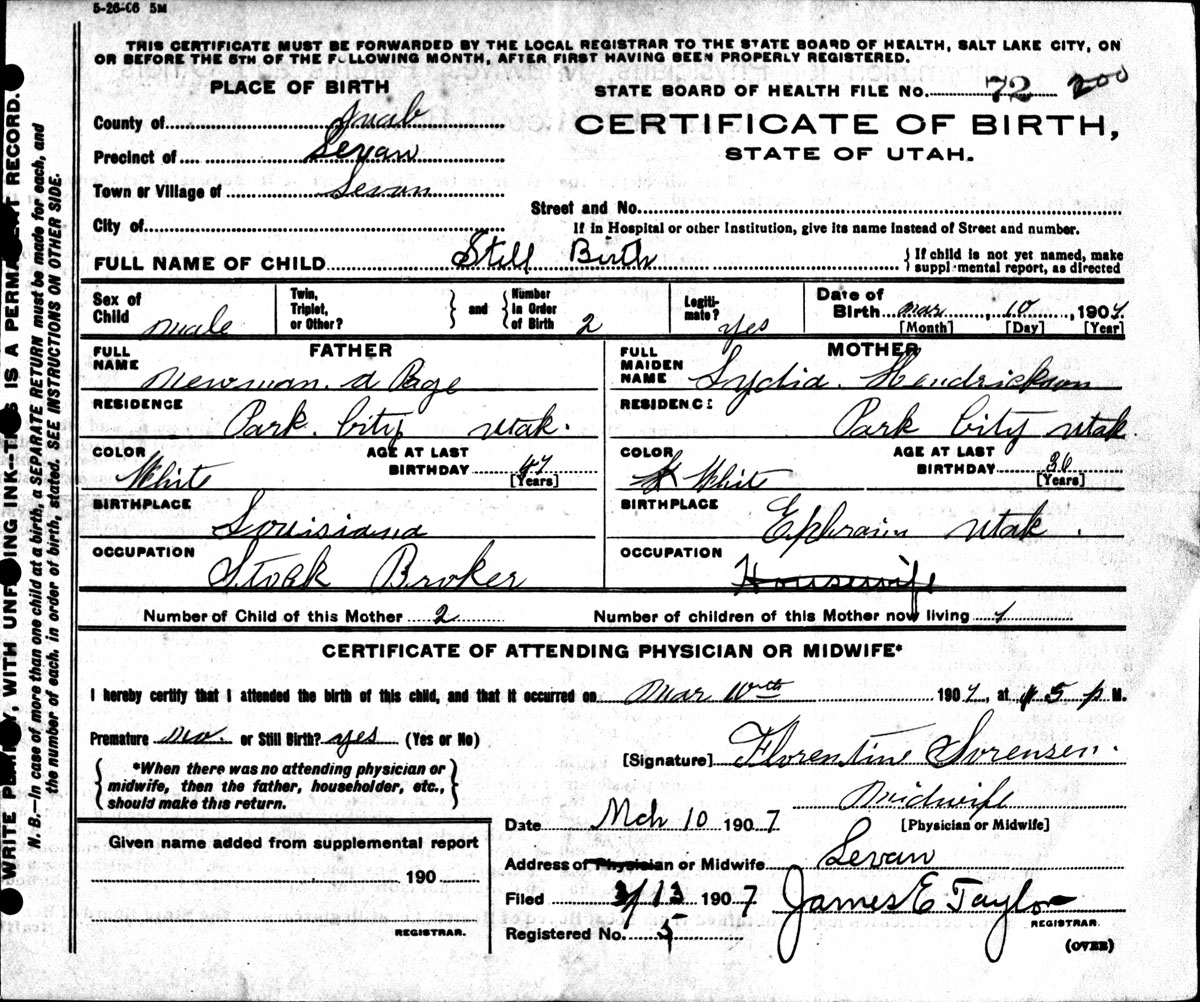 5-26-06 5M
THIS CERTIFICATE MUST BE FORWARDED BY THE LOCAL REGISTRAR TO THE STATE BOARD OF HEALTH, SALT LAKE CITY, ON
OR BEFORE THE 5TH OF THE FOLLOWING MONTH, AFTER FIRST HAVING BEEN PROPERLY REGISTERED.
PLACE OF BIRTH
STATE BOARD OF HEALTH FILE NO. 72 200
County of Juab
CERTIFICATE OF BIRTH,
STATE OF UTAH.
Precinct of Levan
Town or Village of Levan
Street and No.
City of
If in Hospital or other Institution, give its name instead of Street and number.
FULL NAME OF CHILD Still Birth
{ If child is not yet named, make
supplemental report, as directed
Sex of Child male
Twin, Triplet, or Other? } and { Number in Order of Birth 2
Legitimate? yes
Date of Birth Mar 10, 1907
[Month] [Day] [Year]
FATHER
FULL NAME Newman. A Page
RESIDENCE Park. City Utah.
COLOR White
AGE AT LAST BIRTHDAY 47
[Years]
BIRTHPLACE Louisiana
OCCUPATION Stock Broker
MOTHER
FULL MAIDEN NAME Lydia. Hendrickson
RESIDENCE Park City Utah.
COLOR White
AGE AT LAST BIRTHDAY 36
[Years]
BIRTHPLACE Ephraim Utah.
OCCUPATION Housewife
Number of Child of this Mother 2 Number of children of this Mother now living 1
CERTIFICATE OF ATTENDING PHYSICIAN OR MIDWIFE*
I hereby certify that I attended the birth of this child, and that it occurred on Mar 10th 1907, at 5 p M.
Premature no. or Still Birth? yes (Yes or No)
[Signature] Florentine Sorensen.
{ *When there was no attending physician or
midwife, then the father, householder, etc.,
should make this return. }
Midwife
[Physician or Midwife]
Date Mch 10 1907
Given name added from supplemental report
190
REGISTRAR.
Address of Physician or Midwife Levan
Filed 3/13 1907 James E Taylor
REGISTRAR.
Registered No. 5
(OVER)
WRITE PLAINLY, WITH UNFADING INK--THIS IS A PERMANENT RECORD.
N. B.—In case of more than one child at a birth, a SEPARATE RETURN must be made for each, and
the number of each, in order of birth, stated. SEE INSTRUCTIONS ON OTHER SIDE.